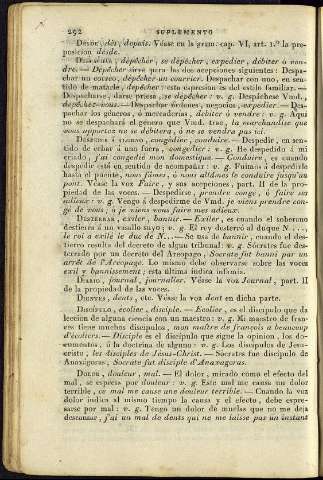 292 SUPLEMENTO
DESDE, dès, depuis. Véase en la gram. cap. VI, art. 1.º la pre-
posicion desde.
DESPACHA, dépêcher, se dépêcher, expedier, débiter ó ven-
dre. — Dépêcher sirve para las dos acepciones siguientes: Despa-
char un correo, dépêcher un courrier. Despachar con uno, en sen-
tido de matarle, dépêcher: esta expresion es del estilo familiar. —
Despacharse, darse priesa, se dépêcher: v. g. Despáchese Vmd.,
dépêchez-vous. — Despachar órdenes, negocios, expedier. — Des-
pachar los géneros, ó mercadurías, débiter ó vendre: v. g. Aquí
no se despachará el género que Vmd. trae, la marchandise que
vous apportez ne se débitera, ó ne se vendra pas ici.
DESPEDIR á alguno, congédier, conduire. — Despedir, en sen-
tido de echar á uno fuera, congédier: v. g. He despedido á mi
criado, j'ai congédié mon domestique. — Conduire, es cuando
despedir está en sentido de acompañar: v. g. Fuimos á despedirle
hasta el puente, nous fûmes, ó nous allâmes le conduire jusqu'au
pont. Véase la voz Faire, y sus acepciones, part. II de la pro-
piedad de las voces. — Despedirse, prendre congé, ó faire ses
adieux: v. g. Vengo á despedirme de Vmd. je viens prendre con-
gé de vous; ó je viens vous faire mes adieux.
DESTERRAR, exiler, bannir. — Exiler, es cuando el soberano
destierra á un vasallo suyo; v. g. El rey desterró al duque N...,
le roi a exilé le duc de N... — Se usa de bannir, cuando el des-
tierro resulta del decreto de algun tribunal: v. g. Sócrates fue des-
terrado por un decreto del Areopago, Socrate fut banni par un
arrêt de l'Areopage. Lo mismo debe observarse sobre las voces
exil y bannissement; esta última indica infamia.
DIARIO, journal, journalier. Véase la voz Journal, part. II
de la propiedad de las voces.
DIENTES, dents, etc. Véase la voz dent en dicha parte.
DISCÍPULO, ecolier, disciple. — Ecolier, es el discípulo que da
leccion de alguna ciencia con un maestro: v. g. Mi maestro de fran-
ces tiene muchos discípulos, mon maître de françois a beaucoup
d'écoliers. — Disciple es el discípulo que sigue la opinion, los do-
cumentos, ó la doctrina de alguno: v. g. Los discípulos de Jesu-
cristo, les disciples de Jésus-Christ. — Sócrates fue discípulo de
Anaxágoras, Socrate fut disciple d'Anaxagoras.
DOLOR, douleur, mal. — El dolor, mirado como el efecto del
mal, se espresa por douleur: v. g. Este mal me causa un dolor
terrible, ce mal me cause une douleur terrible. — Cuando la voz
dolor indica al mismo tiempo la causa y el efecto, debe espre-
sarse por mal: v. g. Tengo un dolor de muelas que no me deja
descansar, j'ai un mal de dents qui ne me laisse pas un instant